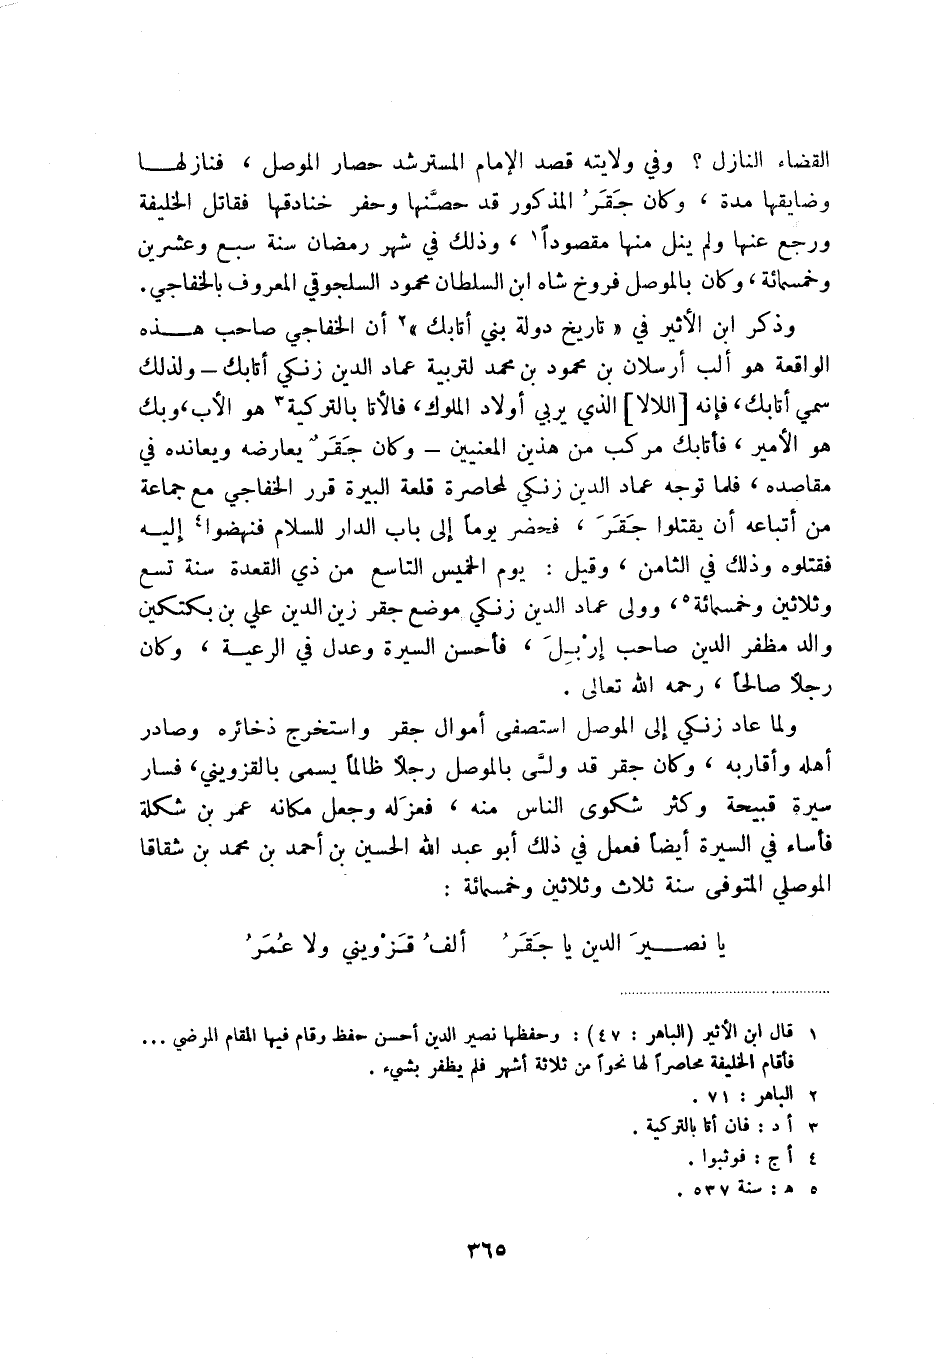 القضاء النازل ؟ وفي ولايته قصد الإمام المسترشد حصار الموصل ، فنازلها
وضايقها مدة ، وكان جَقَرُ المذكور قد حصَّنها وحفر خنادقها فقاتل الخليفة
ورجع عنها ولم ينل منها مقصوداً١ ، وذلك في شهر رمضان سنة سبع وعشرين
وخمسمائة ، وكان بالموصل فروخ شاه ابن السلطان محمود السلجوقي المعروف بالخفاجي .
وذكر ابن الأثير في « تاريخ دولة بني أتابك »٢ أن الخفاجي صاحب هذه
الواقعة هو ألب أرسلان بن محمود بن محمد لتربية عماد الدين زنكي أتابك – ولذلك
سمي أتابك ، فإنه [اللالا] الذي يربي أولاد الملوك ، فالأتا بالتركية٣ هو الأب ، وبك
هو الأمير ، فأتابك مركب من هذين المعنيين – وكان جَقَرٌ يعارضه ويعانده في
مقاصده ، فلما توجه عماد الدين زنكي لمحاصرة قلعة البيرة قرر الخفاجي مع جماعة
من أتباعه أن يقتلوا جَقَرَ ، فحضر يوماً إلى باب الدار للسلام فنهضوا٤ إليه
فقتلوه وذلك في الثامن ، وقيل : يوم الخميس التاسع من ذي القعدة سنة تسع
وثلاثين وخمسمائة٥ ، وولى عماد الدين زنكي موضع جقر زين الدين علي بن بكتكين
والد مظفر الدين صاحب إرْبِلَ ، فأحسن السيرة وعدل في الرعية ، وكان
رجلاً صالحاً ، رحمه الله تعالى .
ولما عاد زنكي إلى الموصل استصفى أموال جقر واستخرج ذخائره وصادر
أهله وأقاربه ، وكان جقر قد ولَّى بالموصل رجلاً ظالماً يسمى بالقزويني ، فسار
سيرة قبيحة وكثر شكوى الناس منه ، فعزله وجعل مكانه عمر بن شكلة
فأساء في السيرة أيضاً فعمل في ذلك أبو عبد الله الحسين بن أحمد بن محمد بن شقاقا
الموصلي المتوفى سنة ثلاث وثلاثين وخمسمائة :
يا نصيرَ الدين يا جَقَرُ ألفُ قَزْويني ولا عُمَرُ
١ قال ابن الأثير (الباهر : ٤٧) : وحفظها نصير الدين أحسن حفظ وقام فيها المقام المرضي ...
فأقام الخليفة محاصراً لها نحواً من ثلاثة أشهر فلم يظفر بشيء .
٢ الباهر : ٧١ .
٣ أ د : فان أتا بالتركية .
٤ أ ج : فوثبوا .
٥ هـ : سنة ٥٣٧ .
٣٦٥